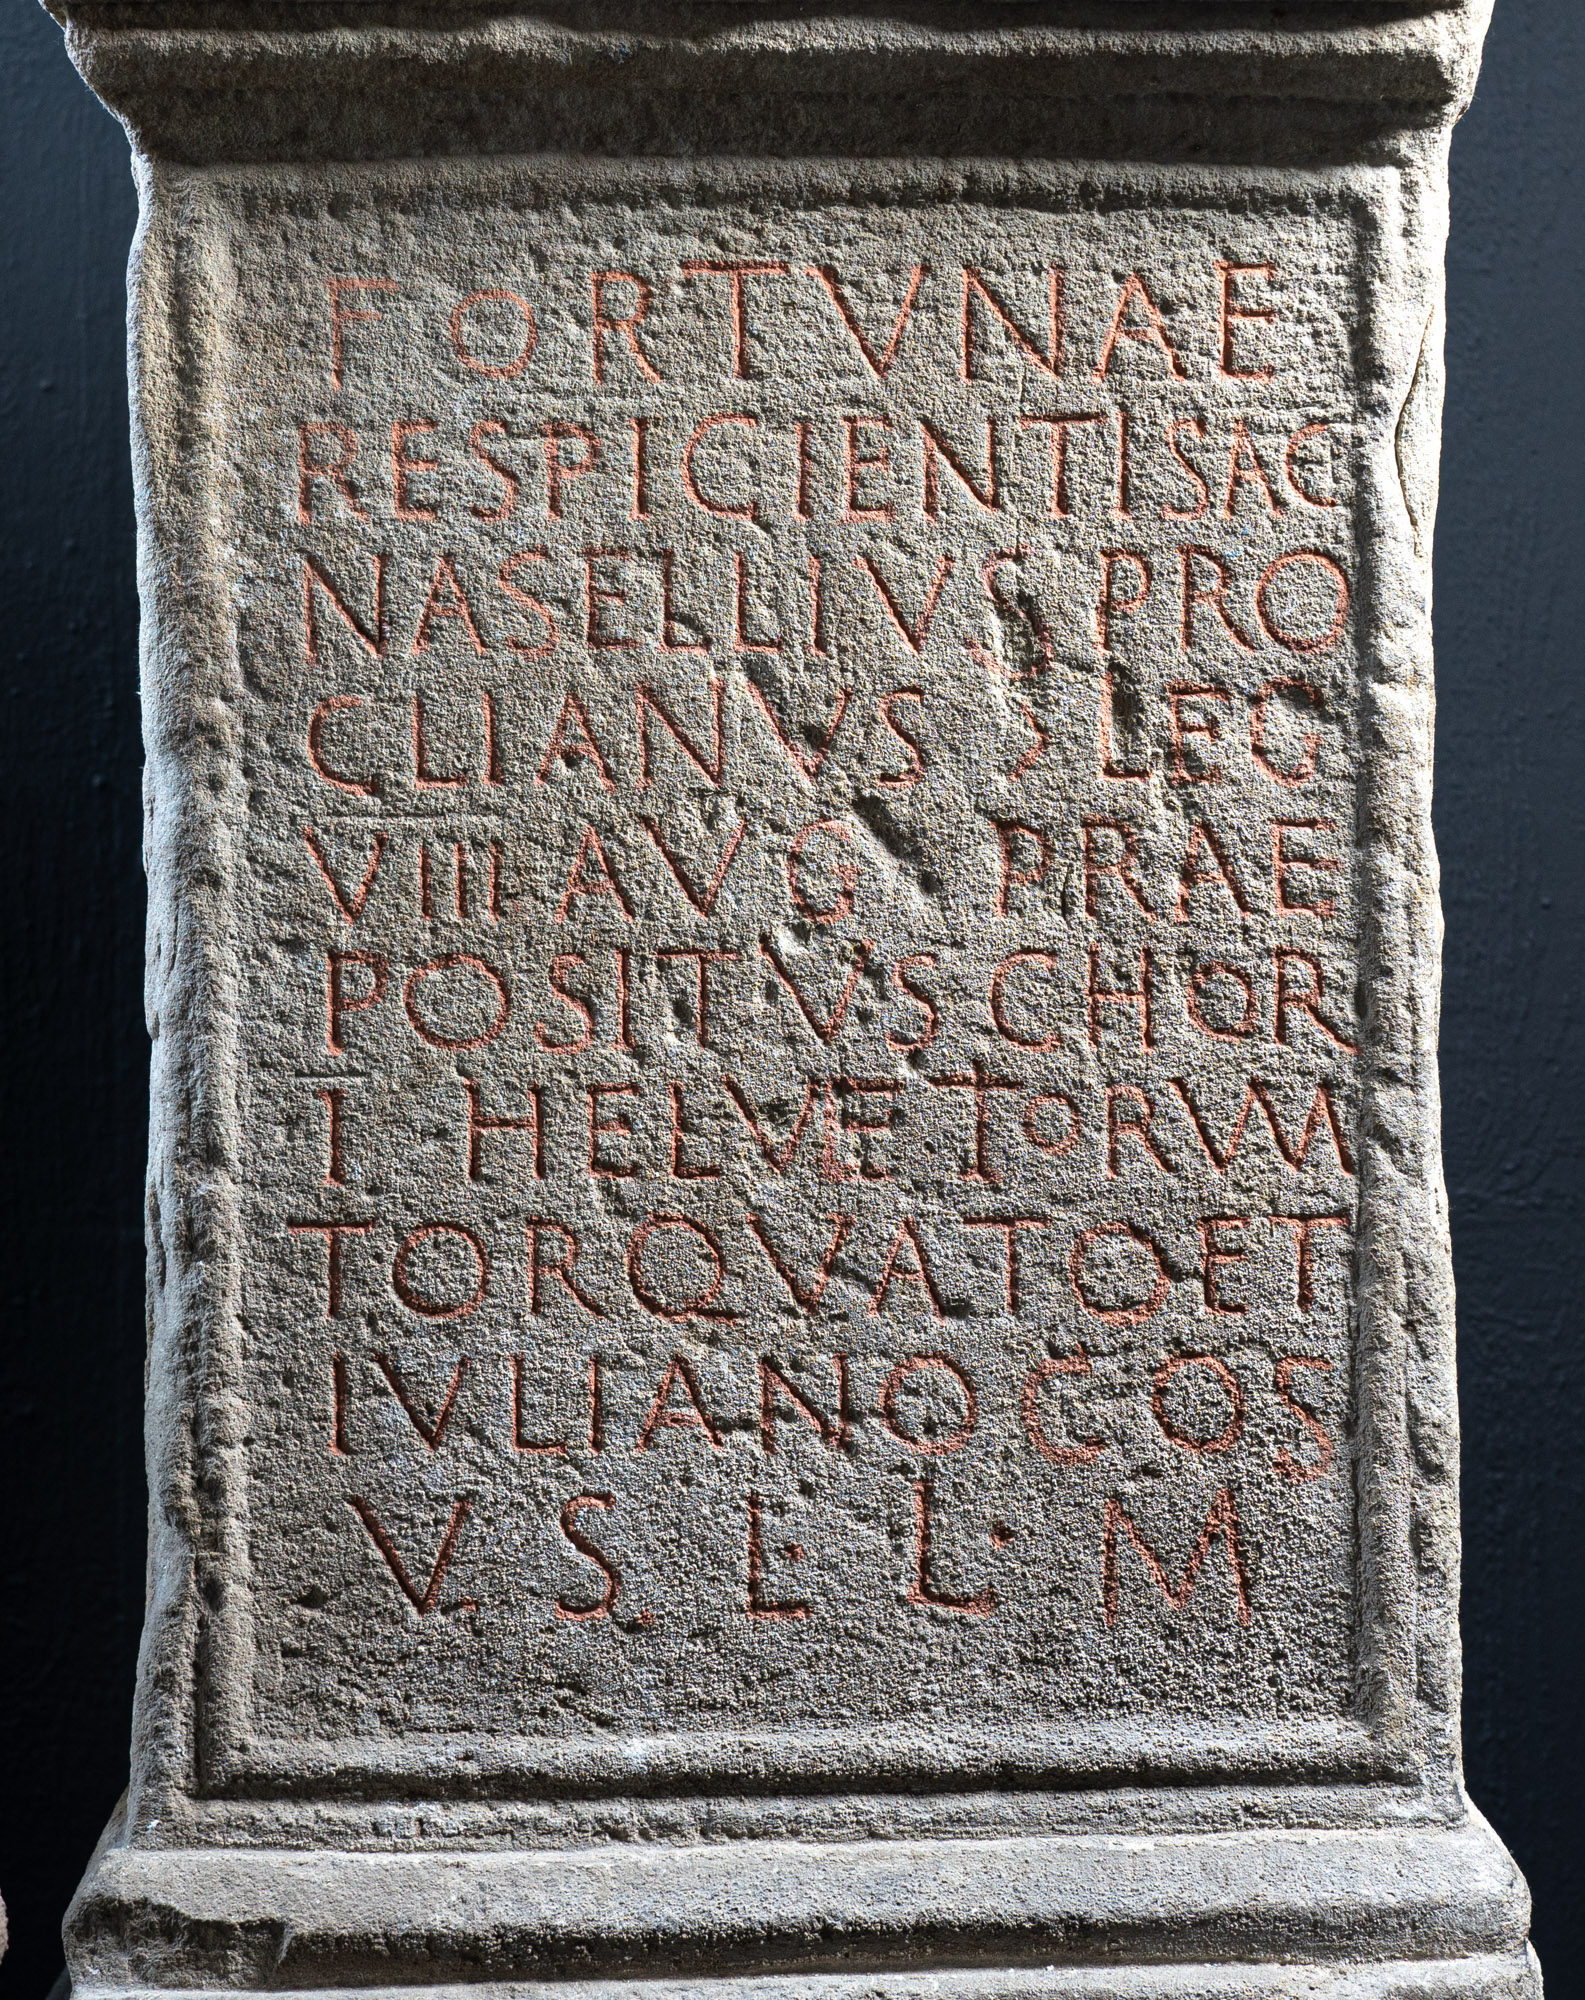 FORTVNAE
RESPICIENTI SAC
NASELLIVS PRO
CLIANVS Ɔ LEG
VIII AVG PRAE
POSITVS CHOR
I HELVETIORVM
TORQVATO ET
IVLIANO COS
V.S.L.L.M